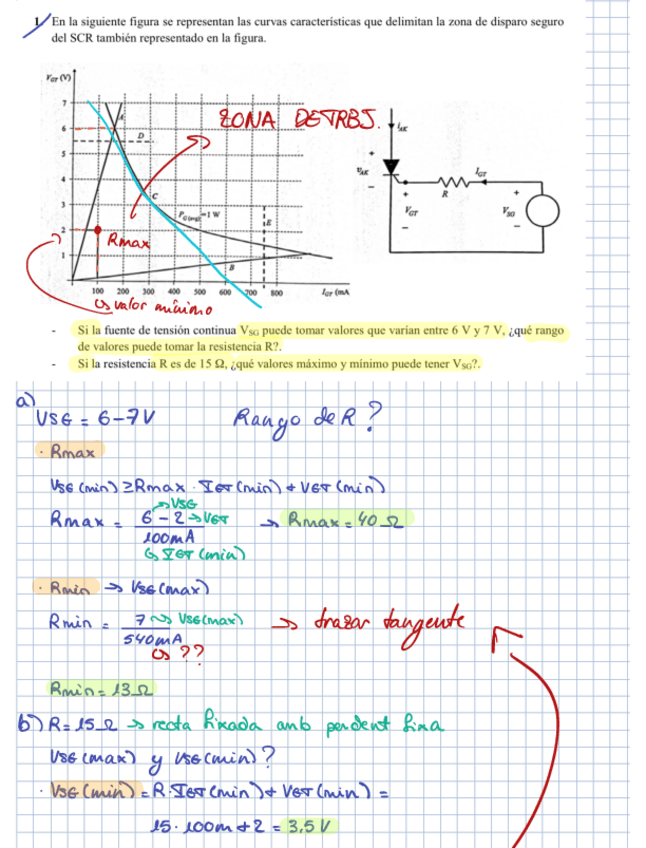 1. En la siguiente figura se representan las curvas características que delimitan la zona de disparo seguro
del SCR también representado en la figura.
V_GT (V)
7
6
5
4
3
2
1
A
D
C
P_G(avg)=1 W
E
B
100 200 300 400 500 600 700 800 I_GT (mA
ZONA DE TRBJ.
Rmax
↳ valor mínimo
i_AK
+
v_AK
−
+
V_GT
−
R
I_GT
+
V_SG
−
- Si la fuente de tensión continua V_SG puede tomar valores que varían entre 6 V y 7 V, ¿qué rango
de valores puede tomar la resistencia R?.
- Si la resistencia R es de 15 Ω, ¿qué valores máximo y mínimo puede tener V_SG?.
a)
VSG = 6-7V Rango de R?
· Rmax
VSG (min) ≥ Rmax · IGT (min) + VGT (min)
→ VSG
Rmax = 6 - 2 → VGT / 100mA → Rmax = 40 Ω
↳ IGT (min)
· Rmin → VSG (max)
Rmin = 7 → VSG (max) / 540mA → trazar tangente
↳ ??
Rmin = 13 Ω
b) R = 15 Ω → recta fixada amb pendent fixa
VSG (max) y VSG (min)?
· VSG (min) = R · IGT (min) + VGT (min) =
15 · 100m + 2 = 3,5 V